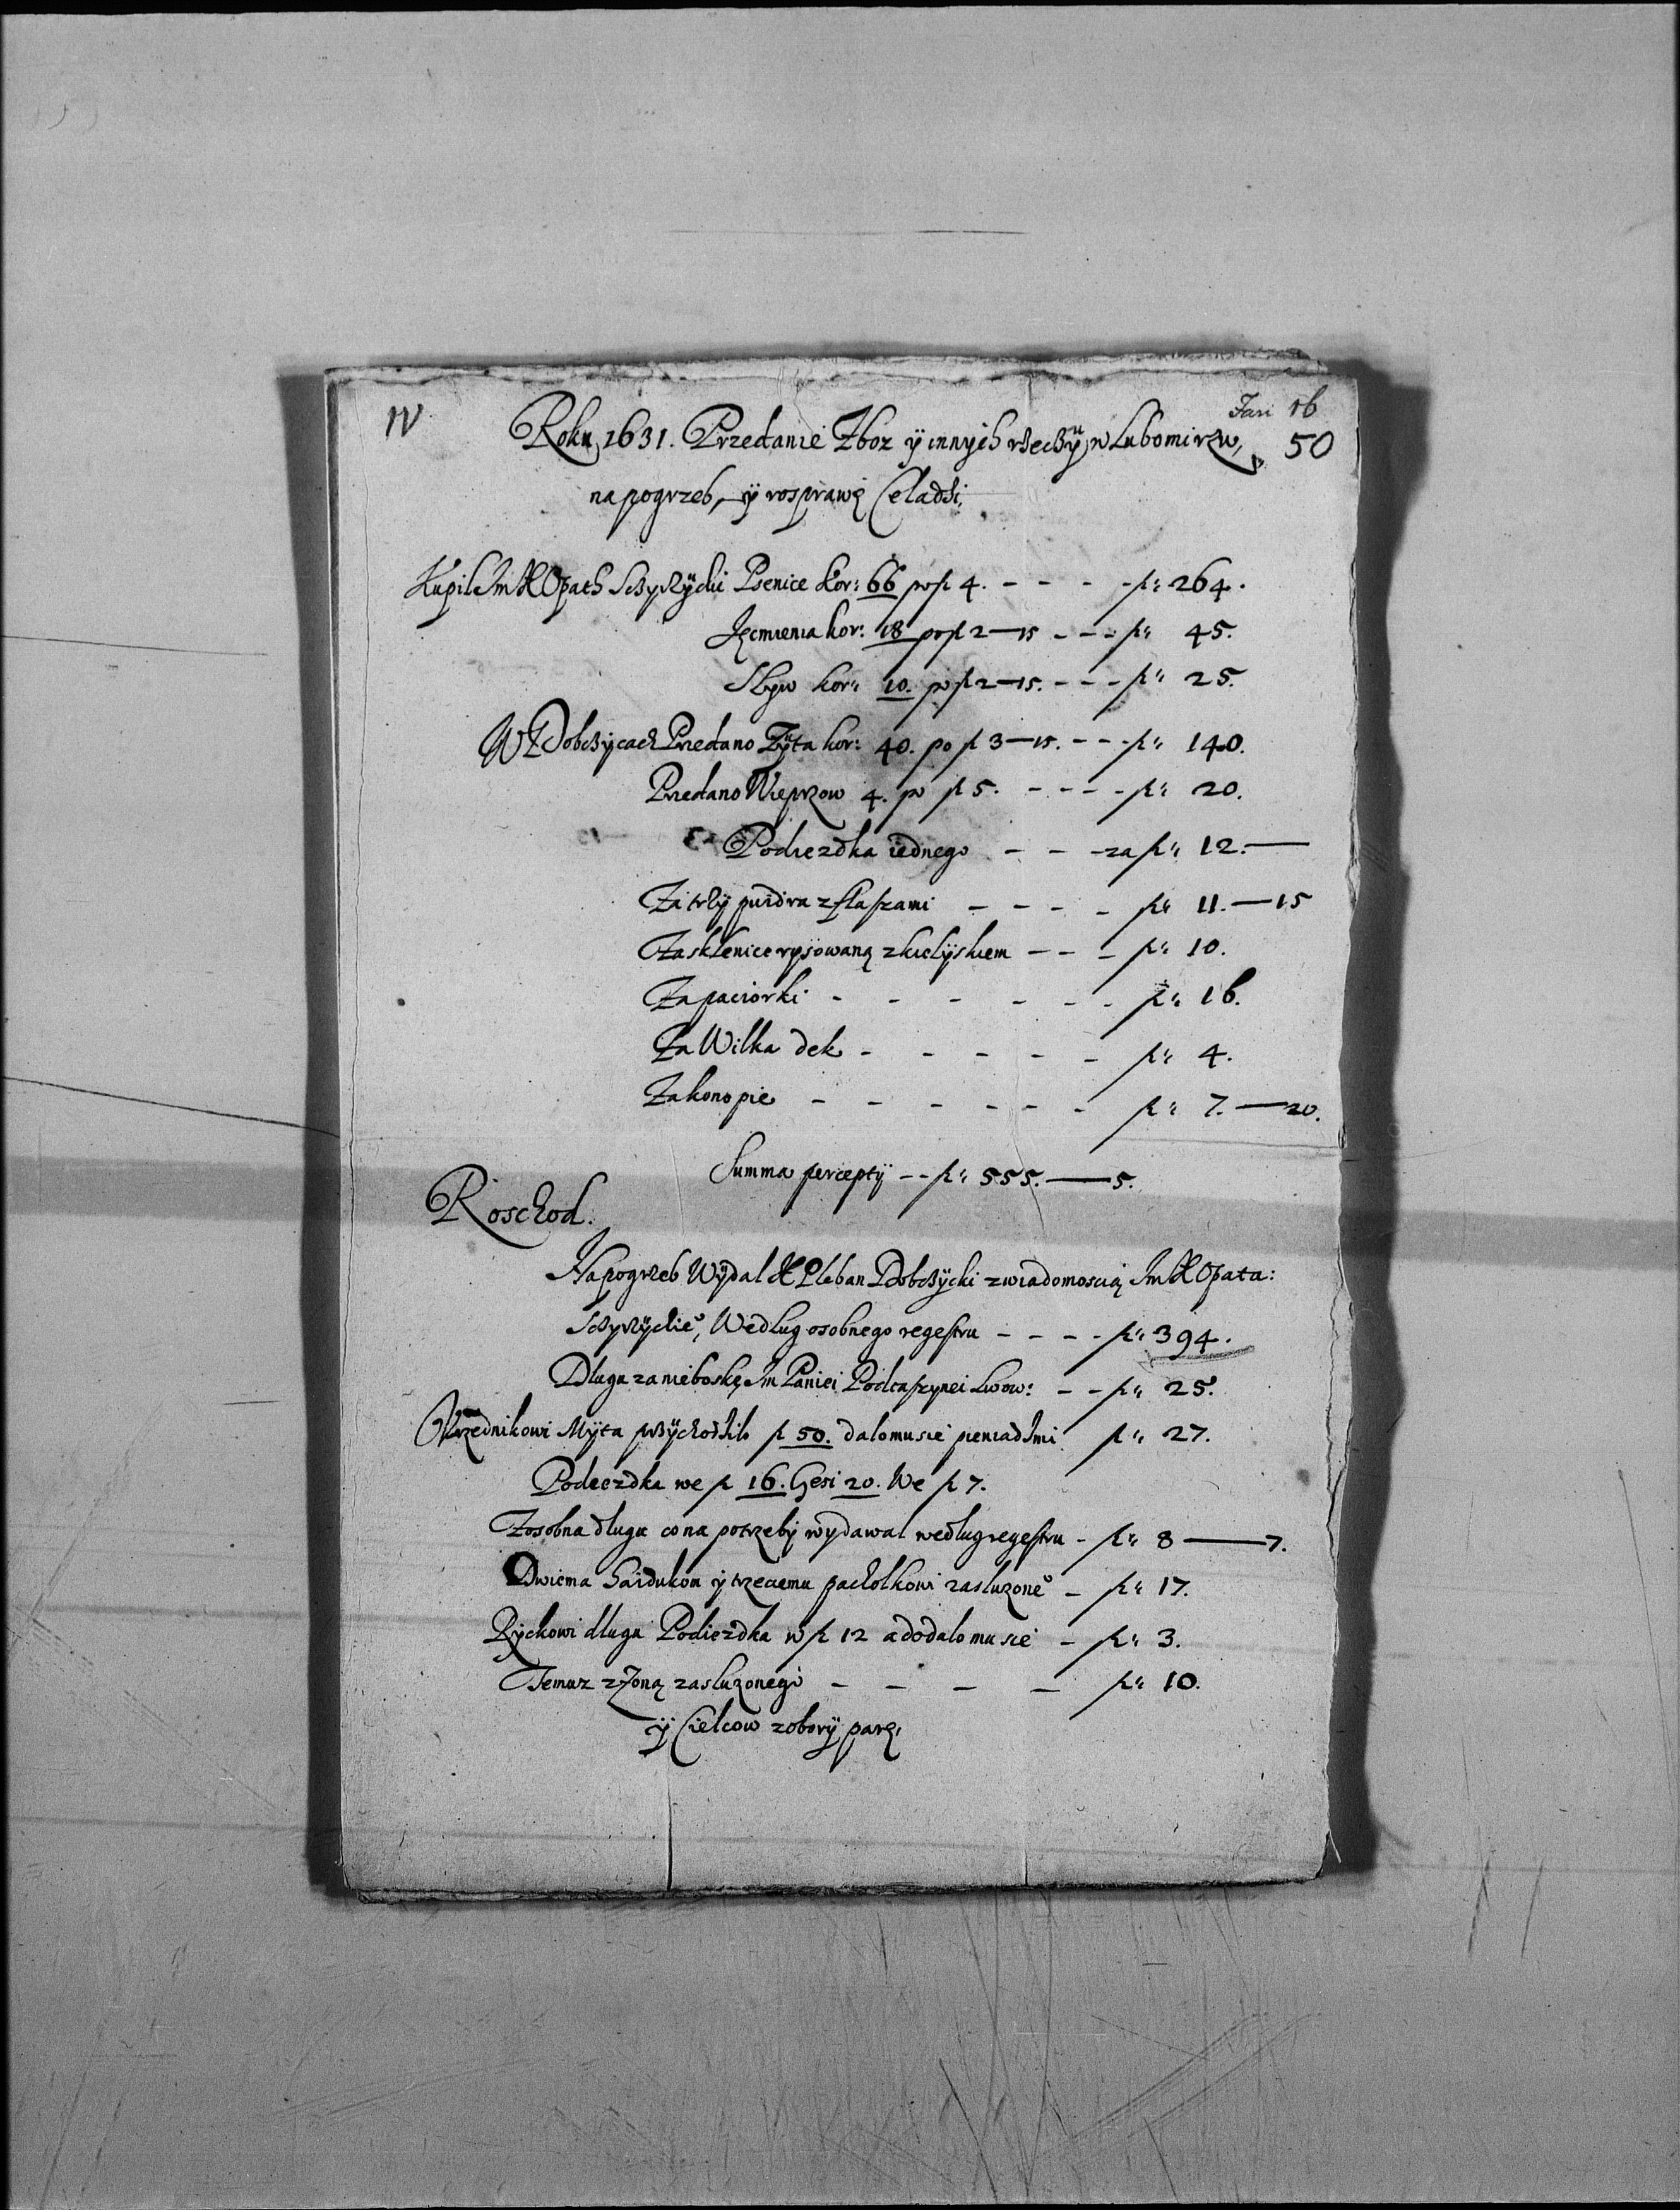 IV
Fasc 16
50
Roku 1631. Przedanie Zboz ÿ innÿch rzeczÿ w Lubomirzu,
na pogrzeb, ÿ rosprawę Czeladzi,
Kupil Jm X Opath Sczyrzÿcki Psenice kor: 66 po fl 4. - - - - fl: 264.
Jęcmienia kor: 18 po fl 2—15 - - - fl: 45.
kor: 10. po fl 2—15. - - - fl: 25.
W Dobczÿcach Przedano Zÿta kor: 40. po fl 3—15. - - - fl: 140.
Przedano Wieprzow 4. po fl 5. - - - - fl: 20.
Podiezdka iednego - - - za fl: 12.—
Za trzÿ puzdra z flaszami - - - - fl: 11.—15
Za sklenice rysowaną z kielÿskiem - - - fl: 10.
Za paciorki - - - - - - fl: 16.
Za Wilka dek - - - - - fl: 4.
Za konopie - - - - - - fl: 7.—20.
Summa perceptÿ - - fl: 555.—5.
Roschod.
Na pogrzeb Wÿdal X Pleban Dobczÿcki z wiadomoscią Jm X Opata:
Sczyrzÿckiego, Wedlug osobnego regestru - - - - fl: 394.
Dlugu za nieboskę Jm Paniei Podczaszynei Lwow: - - fl: 25.
Urzednikowi Mÿta przÿchodzilo fl 50. dalo mu sie pieniadzmi fl: 27.
Podiezdka we fl 16. Gesi 20. We fl 7.
Z osobna dlugu co na potrzeby wydawal wedlug regestru - fl: 8—7.
Dwiema Haidukom ÿ trzeciemu pacholkowi zasluzonego - fl: 17.
Ryckowi dlugu Podiezdka w fl 12 a dodalo mu sie - fl: 3.
Temuz z Zoną zasluzonego - - - - fl: 10.
ÿ Cielcow z oborÿ parę,